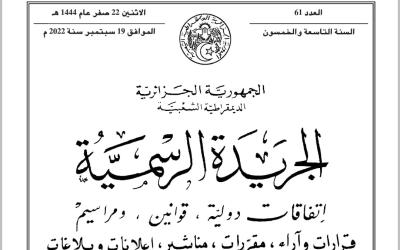 العدد 61
الاثنين 22 صفر عام 1444 هـ
السنة التاسعة والخمسون
الموافق 19 سبتمبر سنة 2022 م
الجمهورية الجزائرية
الديمقراطية الشعبية
الجريدة الرسمية
إتفاقات دولية ، قوانين ، ومراسيم
قرارات وآراء ، مقررات ، مناشير ، إعلانات وبلاغات